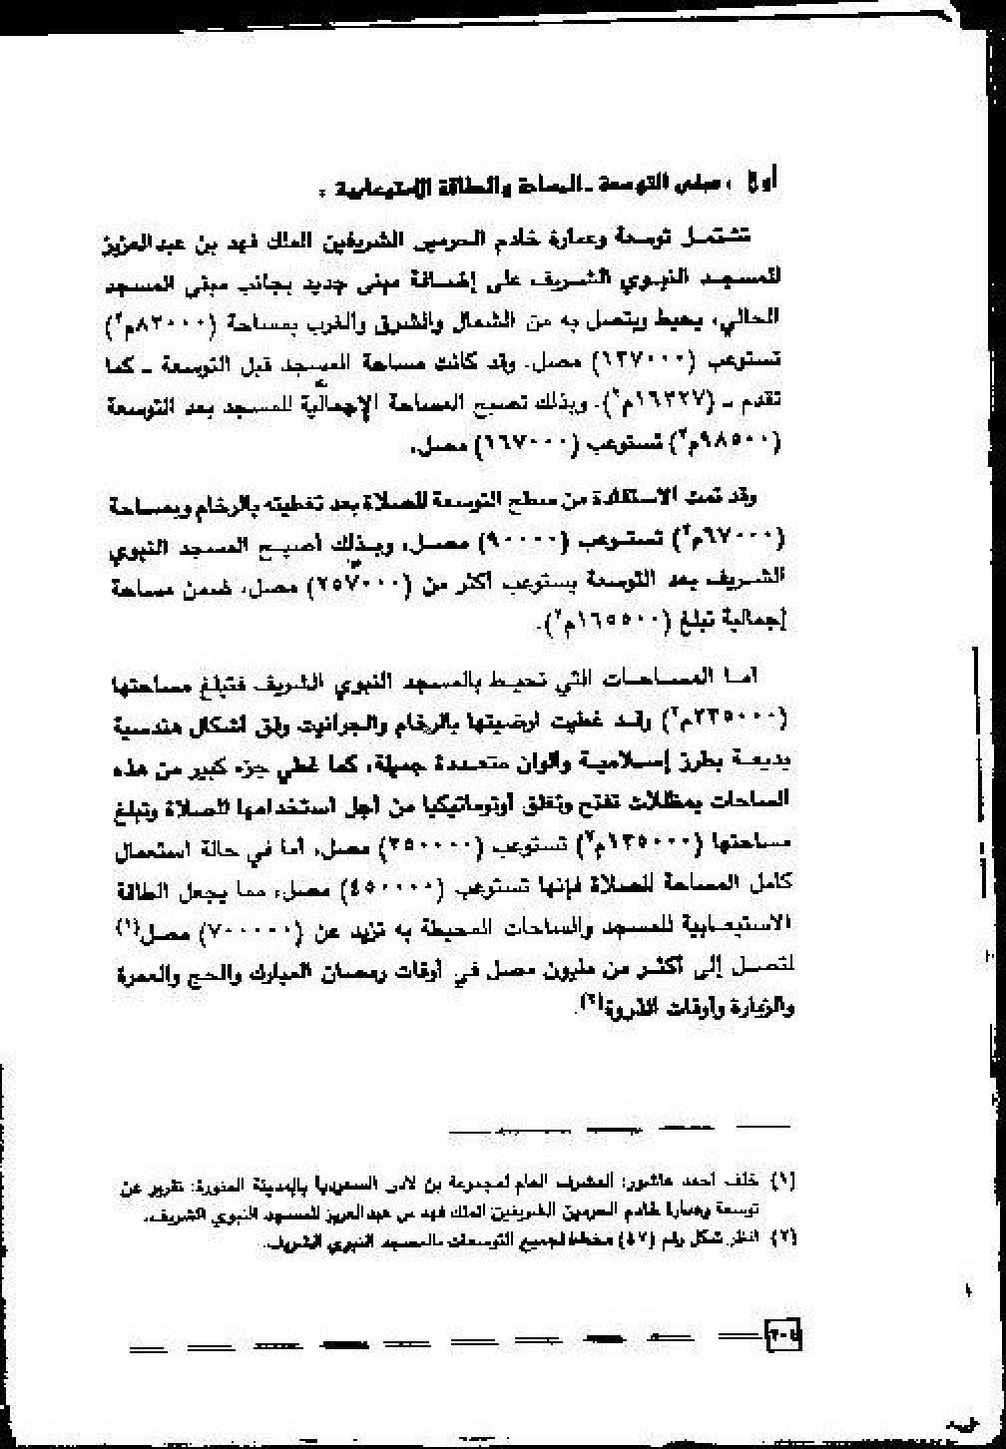 أولاً : مبنى التوسعة - المساحة والطاقة الاستيعابية :
تشتمل توسعة وعمارة خادم الحرمين الشريفين الملك فهد بن عبدالعزيز
للمسجد النبوي الشريف على إضافة مبنى جديد بجانب مبنى المسجد
الحالي، يحيط ويتصل به من الشمال والشرق والغرب بمساحة (٨٢٠٠٠م٢)
تستوعب (١٣٧٠٠٠) مصل. وقد كانت مساحة المسجد قبل التوسعة ـ كما
تقدم ـ (١٦٣٢٧م٢). وبذلك تصبح المساحة الإجمالية للمسجد بعد التوسعة
(٩٨٥٠٠م٢) تستوعب (١٦٧٠٠٠) مصل.
وقد تمت الاستفادة من سطح التوسعة للصلاة بعد تغطيته بالرخام وبمساحة
(٦٧٠٠٠م٢) تستوعب (٩٠٠٠٠) مصل، وبذلك أصبح المسجد النبوي
الشريف بعد التوسعة يستوعب أكثر من (٢٥٧٠٠٠) مصل، ضمن مساحة
إجمالية تبلغ (١٦٥٥٠٠م٢).
أما المساحات التي تحيط بالمسجد النبوي الشريف فتبلغ مساحتها
(٢٣٥٠٠٠م٢) وقد غطيت أرضيتها بالرخام والجرانيت وفق أشكال هندسية
بديعة بطرز إسلامية وألوان متعددة جميلة، كما غطي جزء كبير من هذه
الساحات بمظلات تفتح وتغلق أوتوماتيكيا من أجل استخدامها للصلاة وتبلغ
مساحتها (١٣٥٠٠٠م٢) تستوعب (٢٥٠٠٠٠) مصل، أما في حالة استعمال
كامل المساحة للصلاة فإنها تستوعب (٤٥٠٠٠٠) مصل، مما يجعل الطاقة
الاستيعابية للمسجد والساحات المحيطة به تزيد عن (٧٠٠٠٠٠) مصل(١)
لتصل إلى أكثر من مليون مصل في أوقات رمضان المبارك والحج والعمرة
والزيارة وأوقات الذروة(٢).
(١) خلف أحمد عاشور: المشرف العام لمجموعة بن لادن السعودية بالمدينة المنورة: تقرير عن
توسعة وعمارة خادم الحرمين الشريفين الملك فهد بن عبدالعزيز للمسجد النبوي الشريف.
(٢) انظر شكل رقم (٥٧) مخطط لجميع التوسعات بالمسجد النبوي الشريف.
٢٠٤